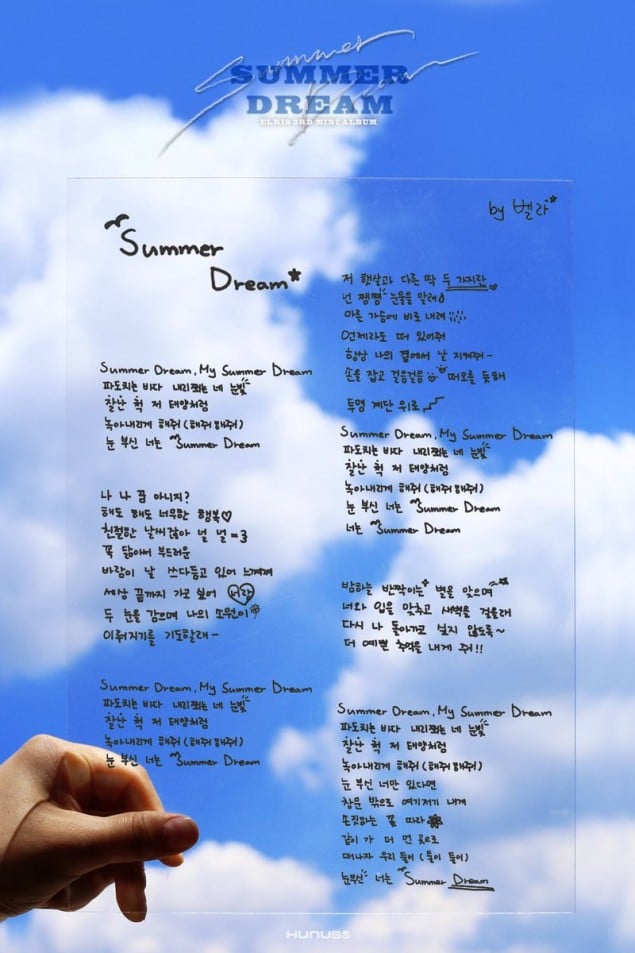 Summer Dream
SUMMER
DREAM
ULRIS 3RD MINI ALBUM
Summer
Dream
Summer Dream, My Summer Dream
파도치는 바다 내리쬐는 네 눈빛
잘난 척 저 태양처럼
녹아내리게 해줘 (해줘 해줘)
눈 부신 너는 Summer Dream
나 나 꿈 아니지?
해도 해도 너무한 행복♡
친절한 날씨잖아 널 널 =3
꼭 닮아서 부드러운
바람이 날 쓰다듬고 있어 느껴져
세상 끝까지 가고 싶어 너랑
두 눈을 감으며 나의 소원이
이뤄지기를 기도할래~
Summer Dream, My Summer Dream
파도치는 바다 내리쬐는 네 눈빛
잘난 척 저 태양처럼
녹아내리게 해줘 (해줘 해줘)
눈 부신 너는 Summer Dream
by 벨라
저 햇살과 다른 딱 두 가지란
넌 쨍쨍 눈물을 말려
마른 가슴에 비로 내려
언제라도 떠 있어줘
항상 나의 곁에서 날 지켜줘~
손을 잡고 걸음걸음 떠오를 듯해
투명 계단 위로
Summer Dream, My Summer Dream
파도치는 바다 내리쬐는 네 눈빛
잘난 척 저 태양처럼
녹아내리게 해줘 (해줘 해줘)
눈 부신 너는 Summer Dream
너는 Summer Dream
밤하늘 반짝이는 별을 맞으며
너와 입을 맞추고 새벽을 걸을래
다시 나 돌아가고 싶지 않도록~
더 예쁜 추억을 내게 줘!!
Summer Dream, My Summer Dream
파도치는 바다 내리쬐는 네 눈빛
잘난 척 저 태양처럼
녹아내리게 해줘 (해줘 해줘)
눈 부신 너만 있다면
창문 밖으로 여기저기 내게
손짓하는 꽃 따라
같이 가 더 먼 곳으로
떠나자 우리 둘이 (둘이 둘이)
눈부신 너는 Summer Dream
HUNUS